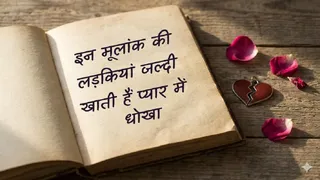 इन मूलांक की
लड़कियां जल्दी
खाती हैं प्यार में
धोखा